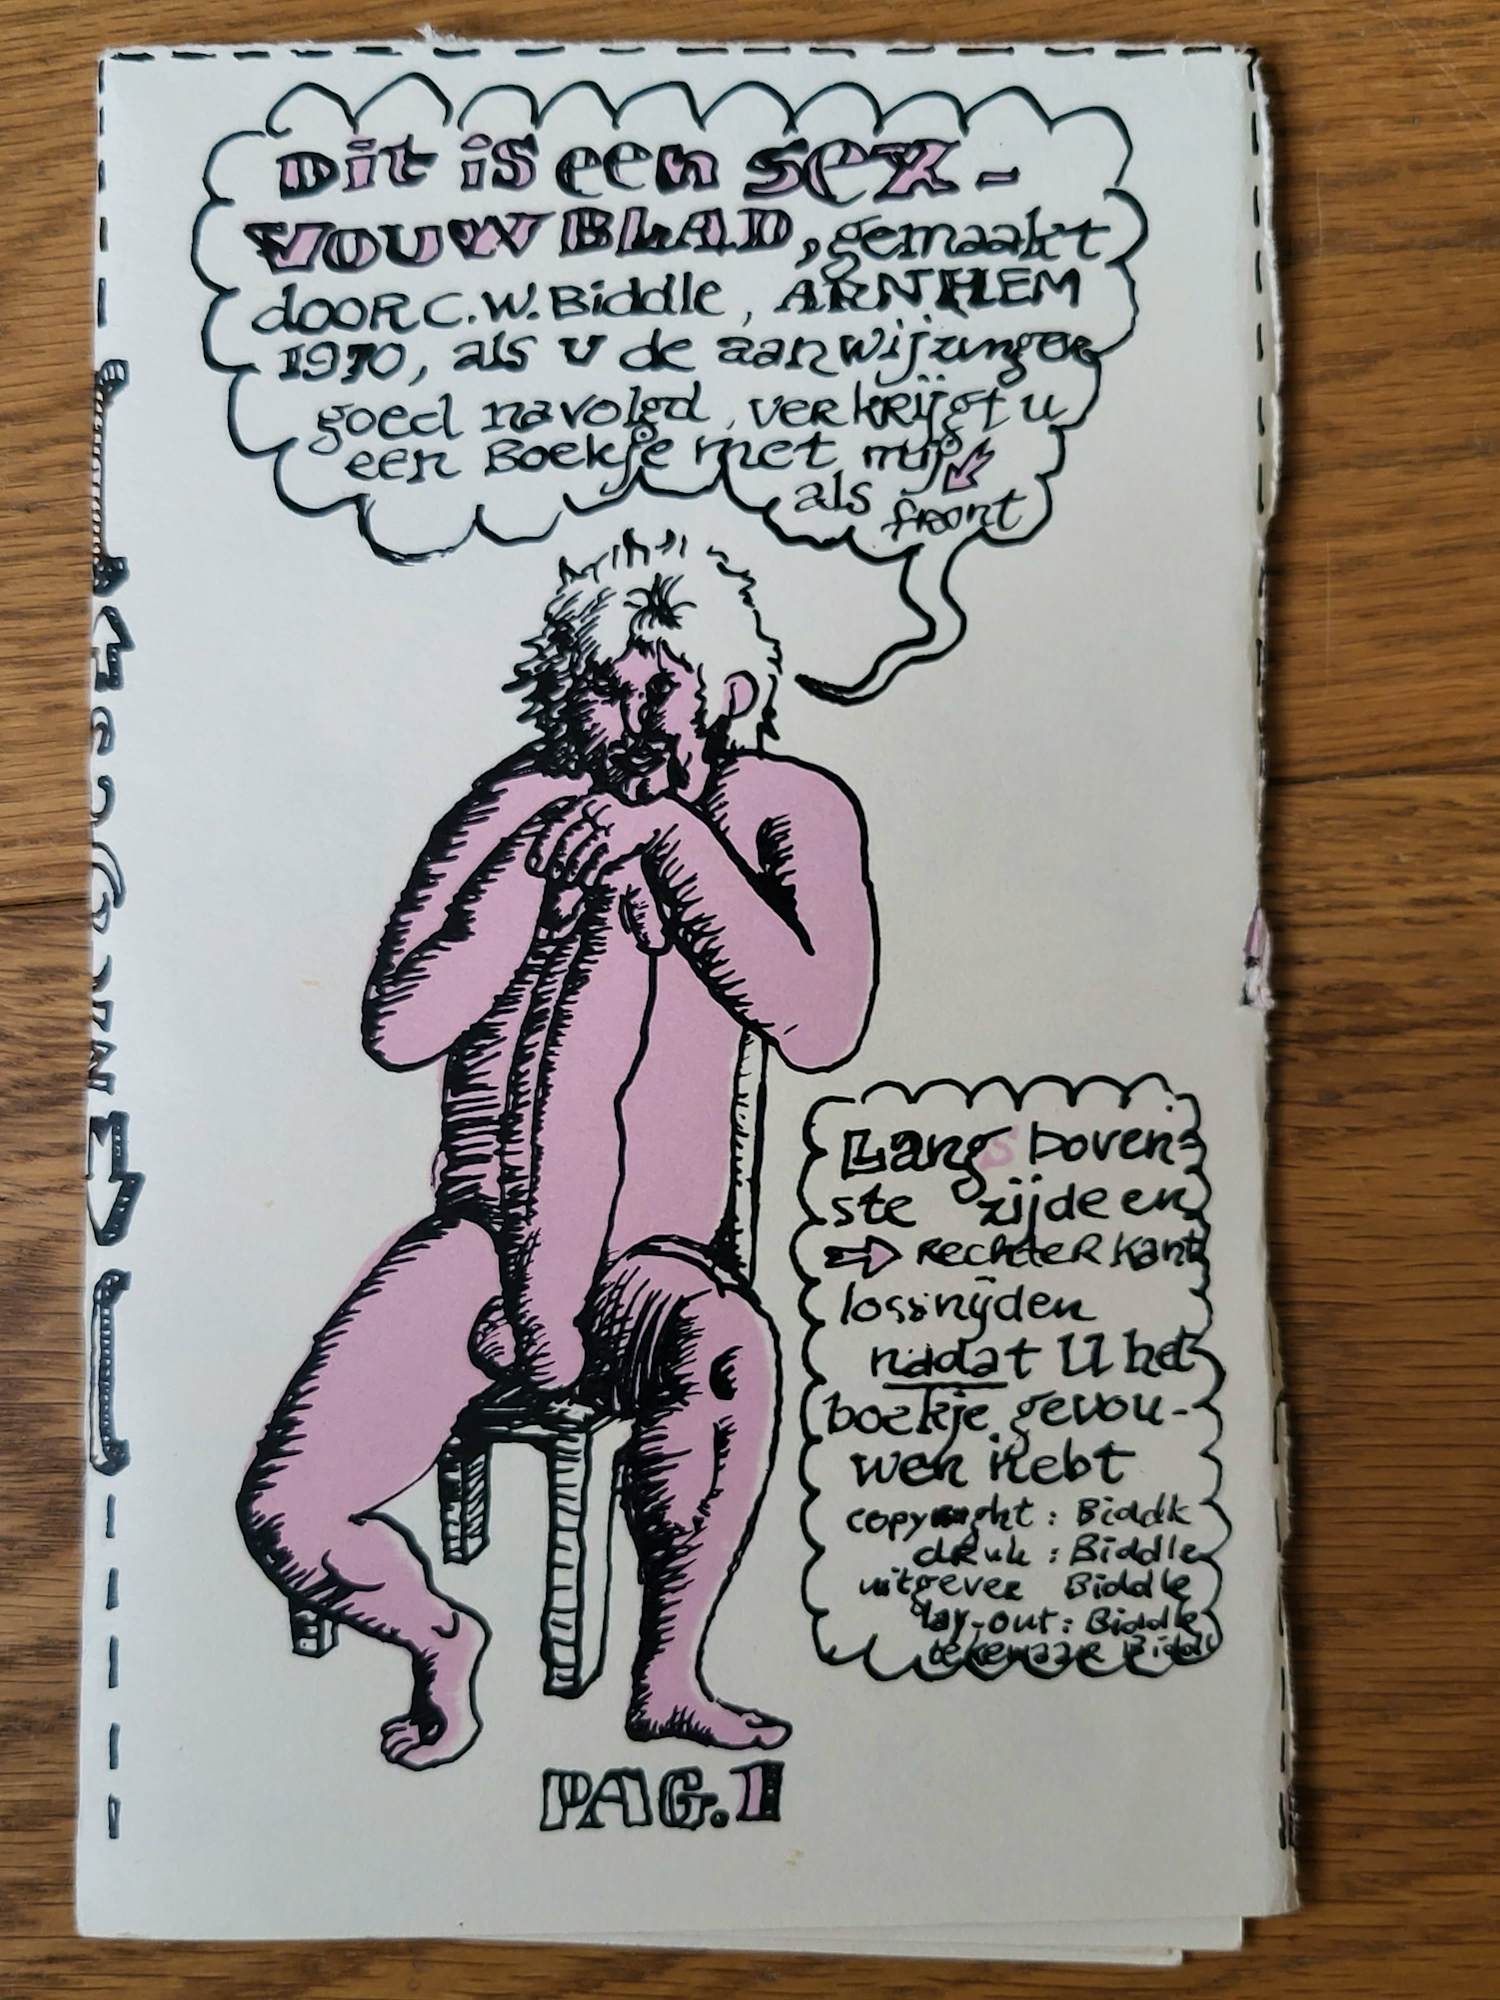 Dit is een sex-
vouwBLAD, gemaakt
dOOR C.W. Biddle, ARNHEM
1970, als U de aanwijzingen
goed navolgd, verkRijgt u
een Boekje met mij
als front
Langs boven-
ste zijde en
RechteR kant
lossnijden
nadat U het
boekje gevou-
wen hebt
copyright: Biddle
dRuk: Biddle
uitgever Biddle
lay-out: Biddle
tekenaar Biddl
PAG.1